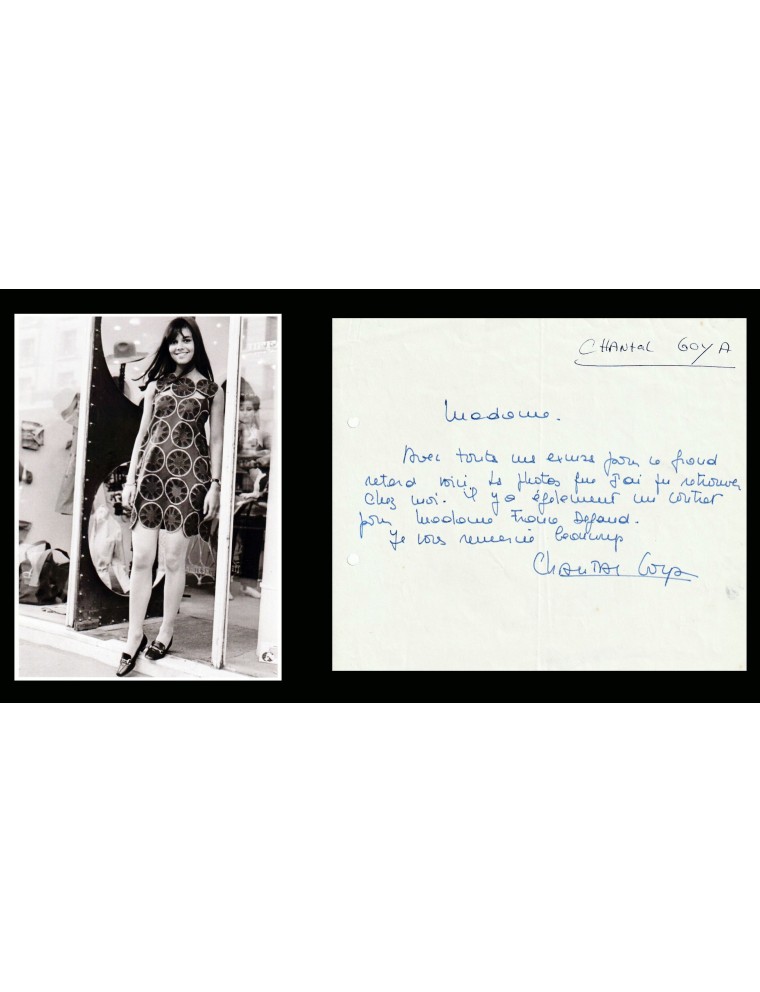 CHANTAL GOYA
Madame.
Avec toutes mes excuses pour ce grand
retard voici les photos que j'ai pu retrouver
chez moi. Il y a également un contrat
pour Madame France
Je vous remercie beaucoup
CHANTAL Goya